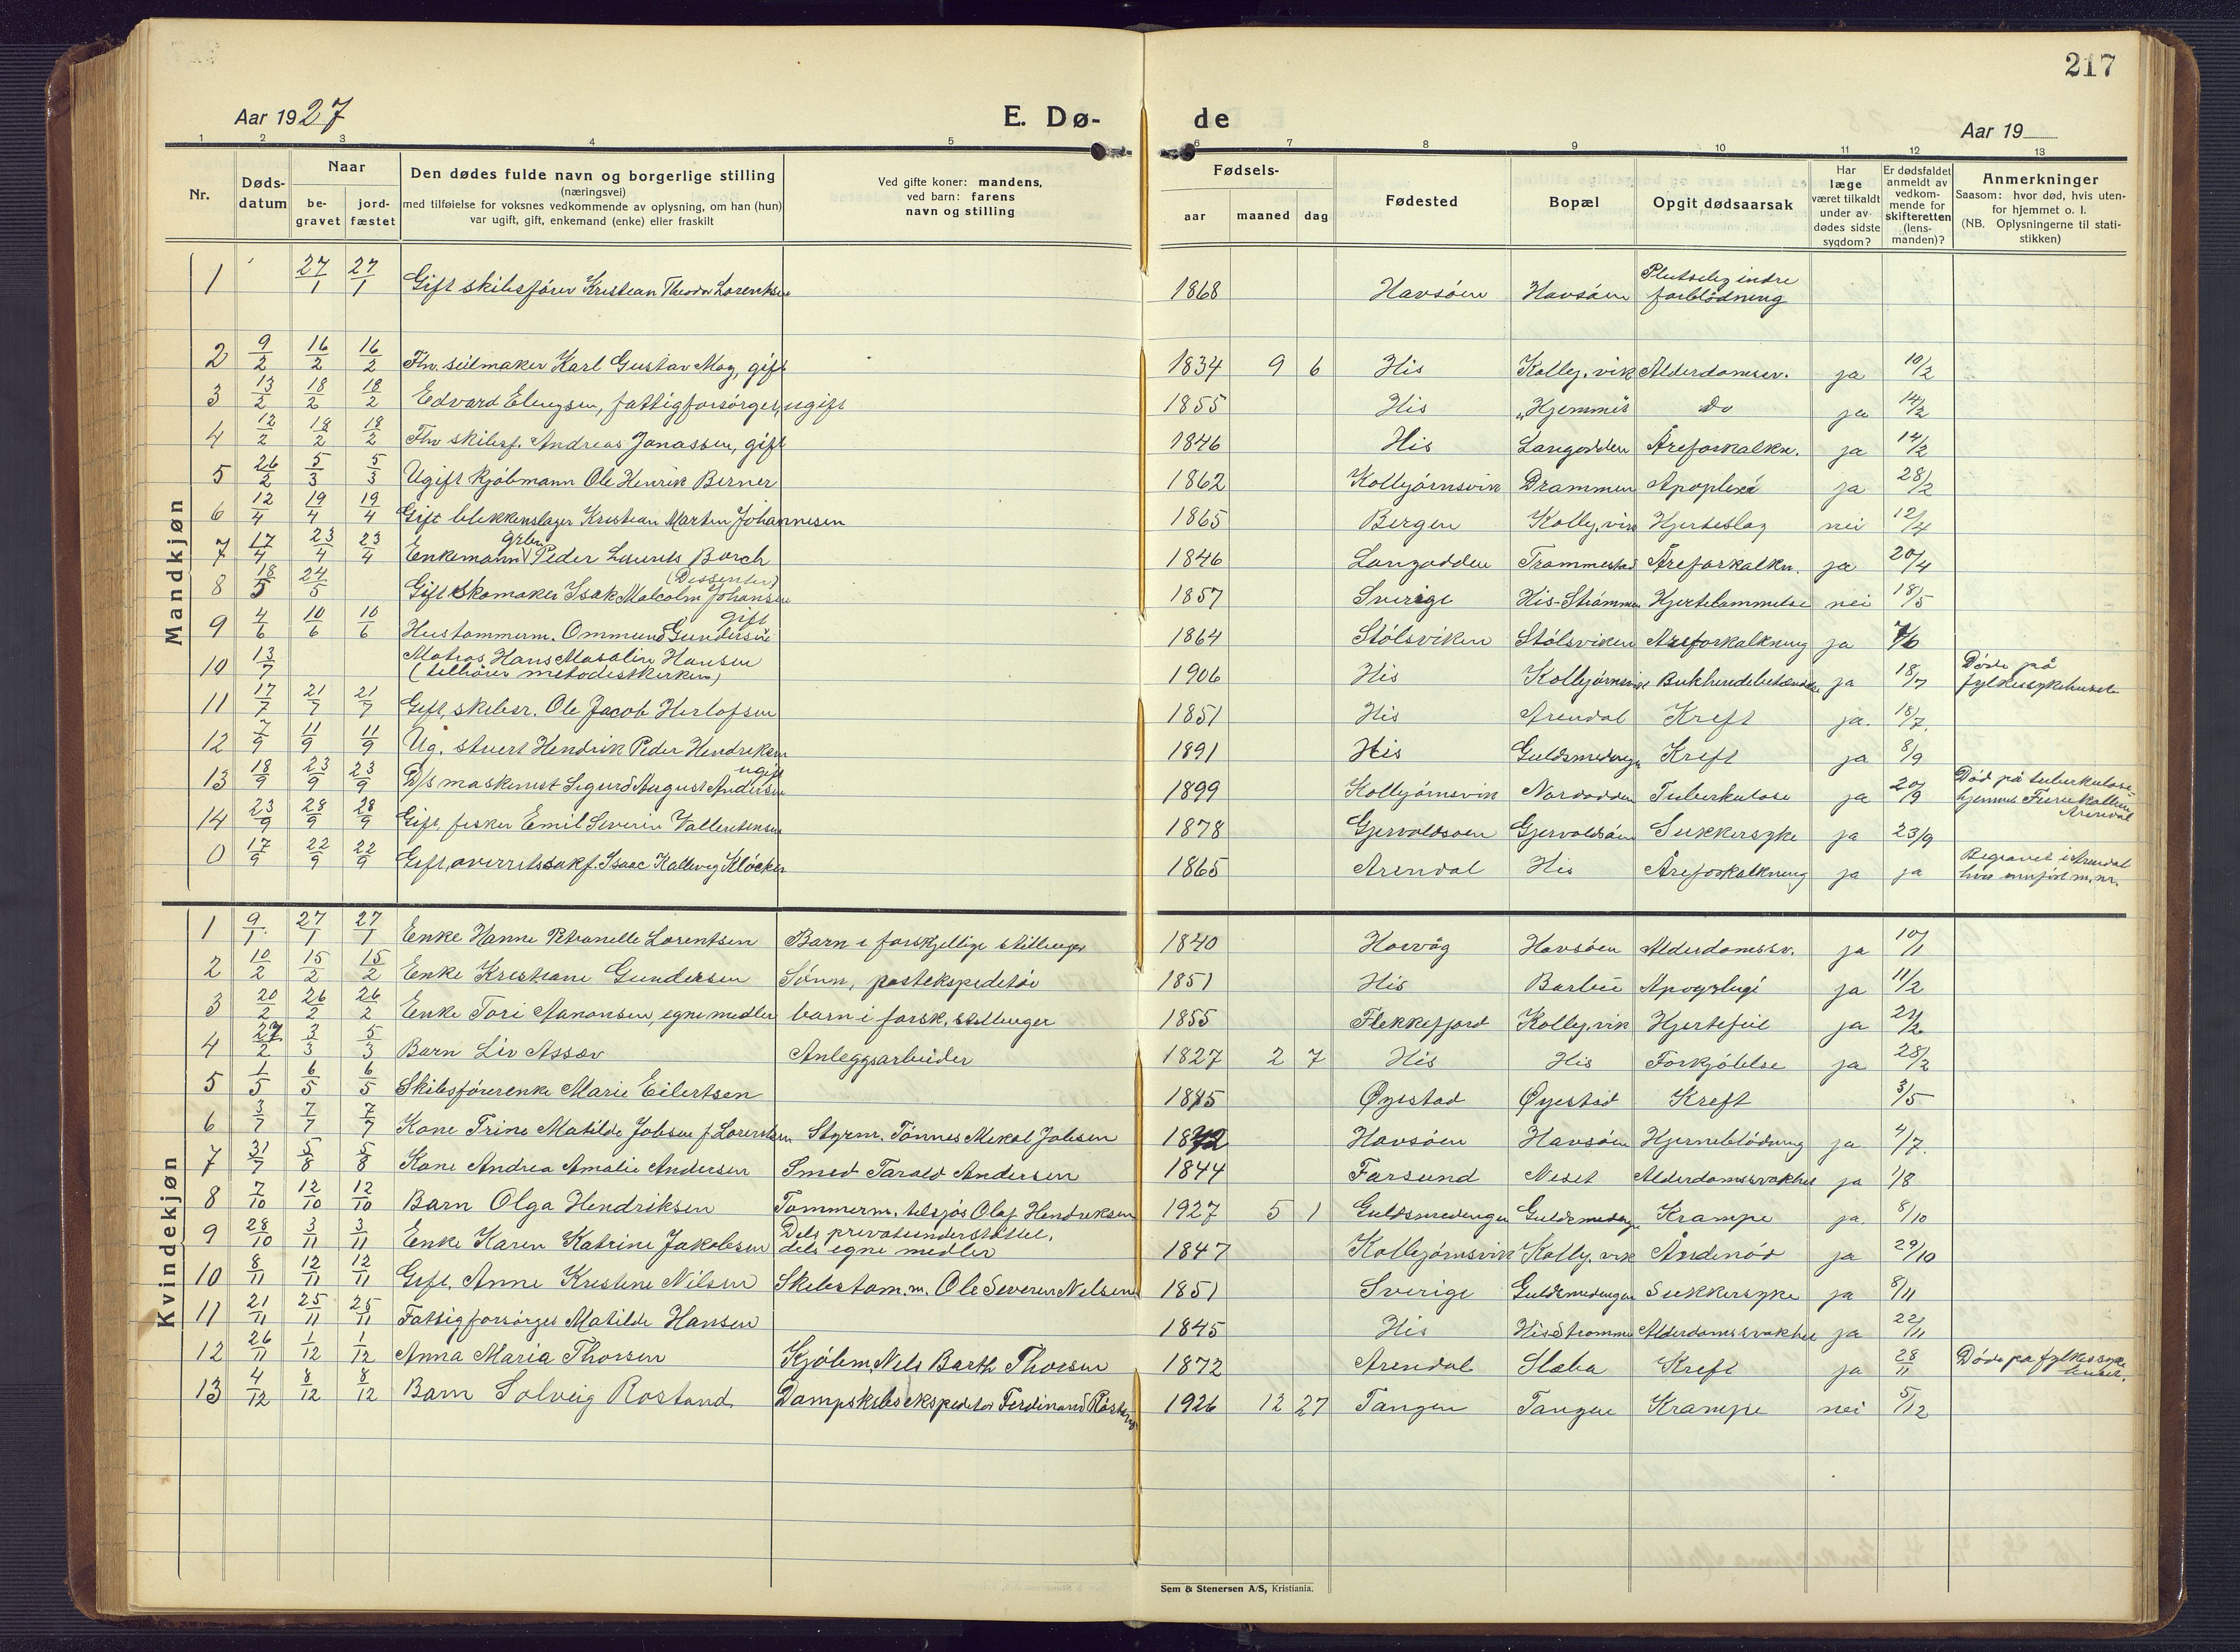 217
Aar 1927
E. Dø-
de
Aar 19
1 2 3 4 5 6 7 8 9 10 11 12 13
Nr.
Døds-
datum
Naar
be-
gravet
jord-
fæstet
Den dødes fulde navn og borgerlige stilling
(næringsvei)
med tilføielse for voksnes vedkommende av oplysning, om han (hun)
var ugift, gift, enkemand (enke) eller fraskilt
Ved gifte koner: mandens,
ved barn: farens
navn og stilling
Fødsels-
aar maaned dag
Fødested
Bopæl
Opgit dødsaarsak
Har
læge
været tilkaldt
under av-
dødes sidste
sygdom?
Er dødsfaldet
anmeldt av
vedkom-
mende for
skifteretten
(lens-
manden)?
Anmerkninger
Saasom: hvor død, hvis uten-
for hjemmet o. l.
(NB. Oplysningerne til stati-
stikken)
Mandkjøn
1 27/1 27/1 Gift skibsfører Kristian Theodor Lorentsen 1868 Havsøen Havsøen Plutselig indre forblødning
2 9/2 16/2 16/2 Fhv. seilmaker Karl Gustav Moy, gift 1834 9 6 His Kolbj.vik Alderdomssv. ja 10/2
3 13/2 18/2 18/2 Edvard Elengsen, fattigforsørget, ugift 1855 His "Hjemmet" Do ja 14/2
4 12/2 18/2 18/2 Fhv skibsf. Andreas Jonassen, gift 1846 His Langodden Åreforkalkn. ja 14/2
5 26/2 5/3 5/3 Ugift kjøbmann Ole Henrik Berner 1862 Kolbjørnsvik Drammen Apoplexi ja 28/2
6 12/4 19/4 19/4 Gift blikkenslager Kristian Martin Johannesen 1865 Bergen Kolbj.vik Hjerteslag nei 12/4
7 17/4 23/4 23/4 Enkemann Peder Laurits Borch 1846 Langodden Trommestad Åreforkalkn. ja 20/4
8 18/5 24/5 Gift skomaker Isak Malcolm Johansen (Dissenter) 1857 Sverige His-Strømmen Hjertelammelse nei 18/5
9 4/6 10/6 10/6 Hustømmerm. Ommund Gundersen gift 1864 Stølsviken Stølsviken Åreforkalkning ja 7/6
10 13/7 Matros Hans Masalin Hansen
(tilhører metodistkirken) 1906 His Kolbjørnsvik Bukhindebetændelse ja 18/7 Døde på fylkessykehuset
11 17/7 21/7 21/7 Gift, skibsr. Ole Jacob Herlofsen 1851 His Arendal Kreft ja. 18/7
12 7/9 11/9 11/9 Ug. stuert Hendrik Peder Hendriksen 1891 His Guldsmedengen Kreft ja 8/9
13 18/9 23/9 23/9 D/s maskinist Sigurd August Andersen ugift 1899 Kolbjørnsvik Nordodden Tuberkulose ja 20/9 Død på tuberkulose-
hjemmet Furukollen, Arendal
14 23/9 28/9 28/9 Gift, fisker Emil Severin Vallentinsen 1878 Gjervoldsøen Gjervoldsøen Sukkersyke ja 23/9
0 17/9 22/9 22/9 Gift, overretssakf. Isaac Kallevig Kløcker 1865 Arendal His Åreforkalkning ja ja Begravet i Arendal
hvor innført m. nr.
Kvindekjøn
1 9/1 27/1 27/1 Enke Hanne Petronelle Lorentsen Barn i forskjellige stillinger 1840 Høvåg Havsøen Alderdomssv. ja 10/1
2 10/2 15/2 15/2 Enke Kristiane Gundersen Sønn, postekspeditør 1851 His Barlie ja 11/2
3 20/2 26/2 26/2 Enke Tori Aanonsen, egne midler barn i forsk. stillinger 1855 Flekkefjord Kolbj.vik Hjertefeil ja 21/2
4 27/2 3/3 5/3 Barn Liv Assev Anleggsarbeider 1827 2 7 His His Forkjølelse ja 28/2
5 1/5 6/5 6/5 Skibsførerenke Marie Eilertsen 1885 Øyestad Øyestad Kreft 3/5
6 3/7 7/7 7/7 Kone Trine Matilde Jobsen f. Lorentsen Styrm. Tønnes Mekal Jobsen 1872 Havsøen Havsøen Hjerneblødning ja 4/7.
7 31/7 5/8 5/8 Kone Andrea Amalie Andersen Smed Tarald Andersen 1844 Farsund Neset Alderdomssvakhet ja 1/8
8 7/10 12/10 12/10 Barn Olga Hendriksen Tømmerm. tilsjøs Olaf Hendriksen 1927 5 1 Guldsmedengen Guldsmedengen Krampe ja. 8/10
9 28/10 3/11 3/11 Enke Karen Katrine Jakobsen Dels privatunderstøttet,
dels egne midler 1847 Kolbjørnsvik Kolbj.vik Åndenød ja 29/10
10 8/11 12/11 12/11 Gift, Anne Kristine Nilsen Skibstøm.m. Ole Severin Nilsen 1851 Sverige Guldsmedengen Sukkersyke ja 8/11
11 21/11 25/11 25/11 Fattigforsørges Matilde Hansen 1845 His His-Strømmen Alderdomssvakhet ja 22/11
12 26/11 1/12 1/12 Anna Maria Thorsen Kjøbm. Nils Barth Thorsen 1872 Arendal Slaba Kreft ja 28/11 Døde på fylkessyke-
huset.
13 4/12 8/12 8/12 Barn Solveig Rostand Dampskibsekspeditør Ferdinand Rostand 1926 12 27 Tangen Tangen Krampe nei 5/12
Sem & Stenersen A/S, Kristiania.